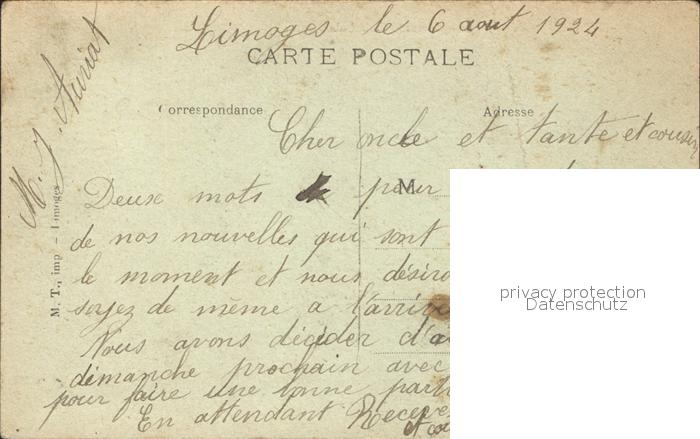 Limoges le 6 aout 1924
CARTE POSTALE
Correspondance
Adresse
Cher oncle et tante et cousin
Deux mots pour
M
de nos nouvelles qui sont
le moment et nous désiro
soyez de même a l'arriv
Nous avons décider d'a
dimanche prochain avec
pour faire une bonne part
En attendant Receve
et co
M. J. Auriat
M. T., imp - Limoges
privacy protection
Datenschutz